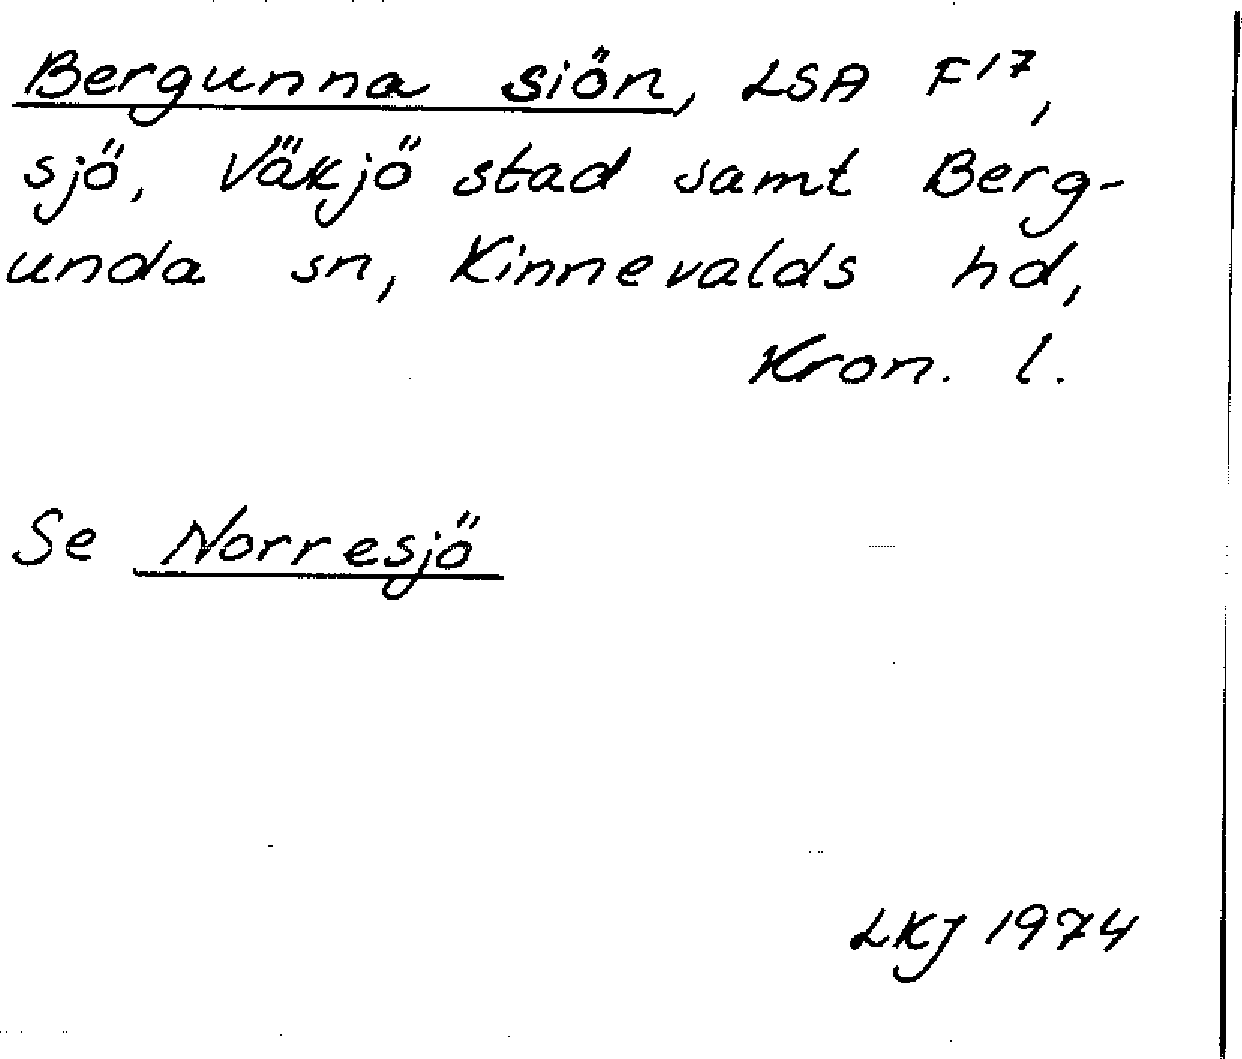 Bergunna siön, LSA F17,
sjö, Väkjö stad samt Berg-
unda sn, Kinnevalds hd,
Kron. l.
Se Norresjö
LKJ 1974